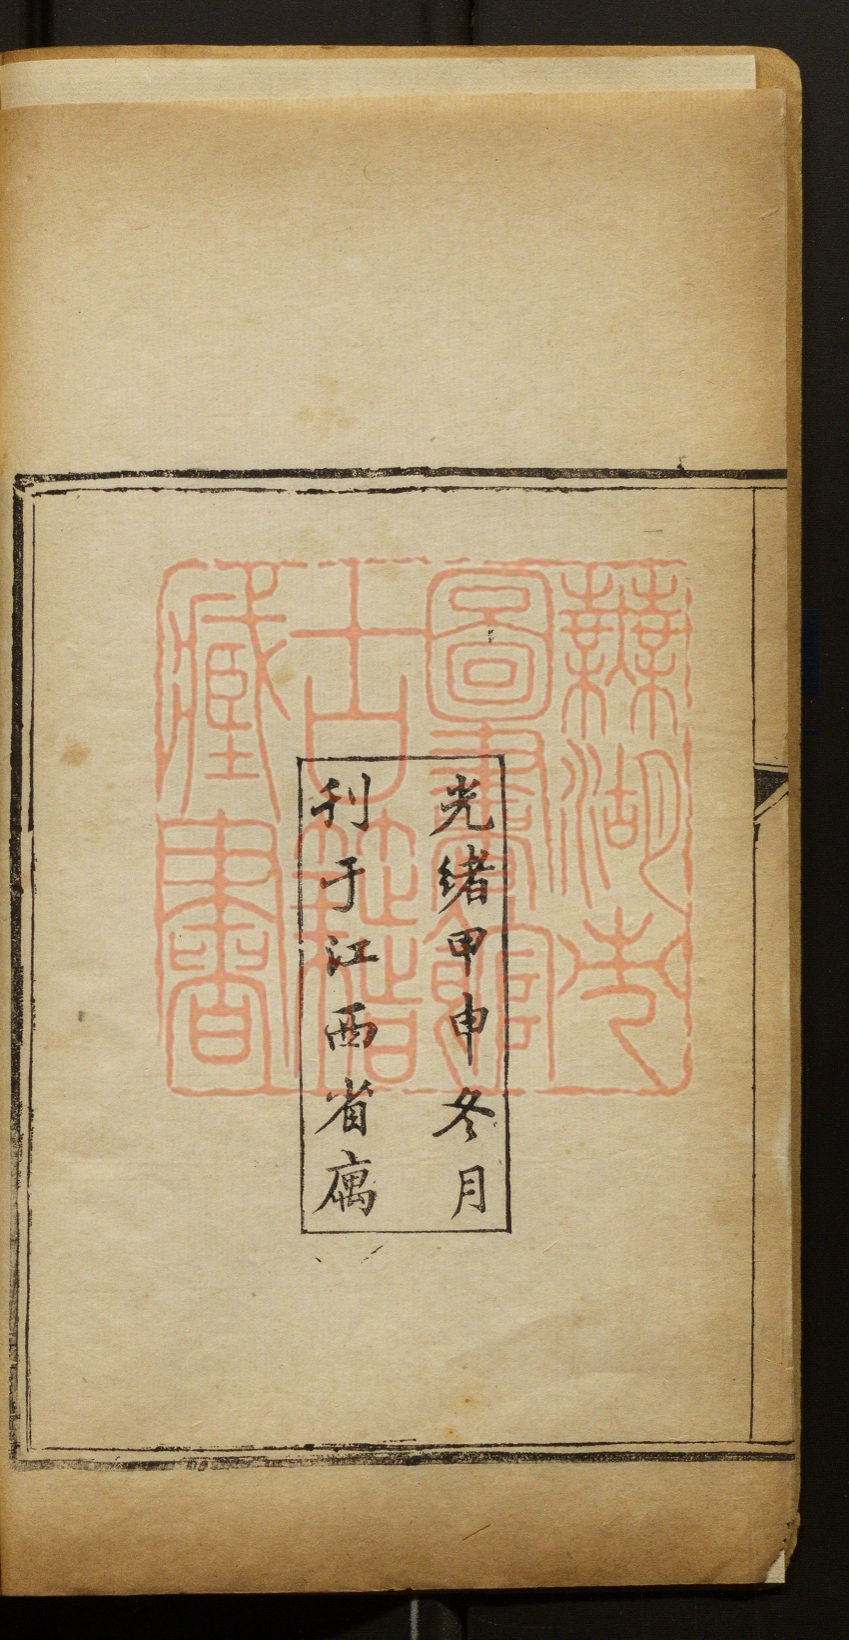 光緒甲申冬月
刋于江西省庽
蕪湖市
圖書館
古籍
藏書